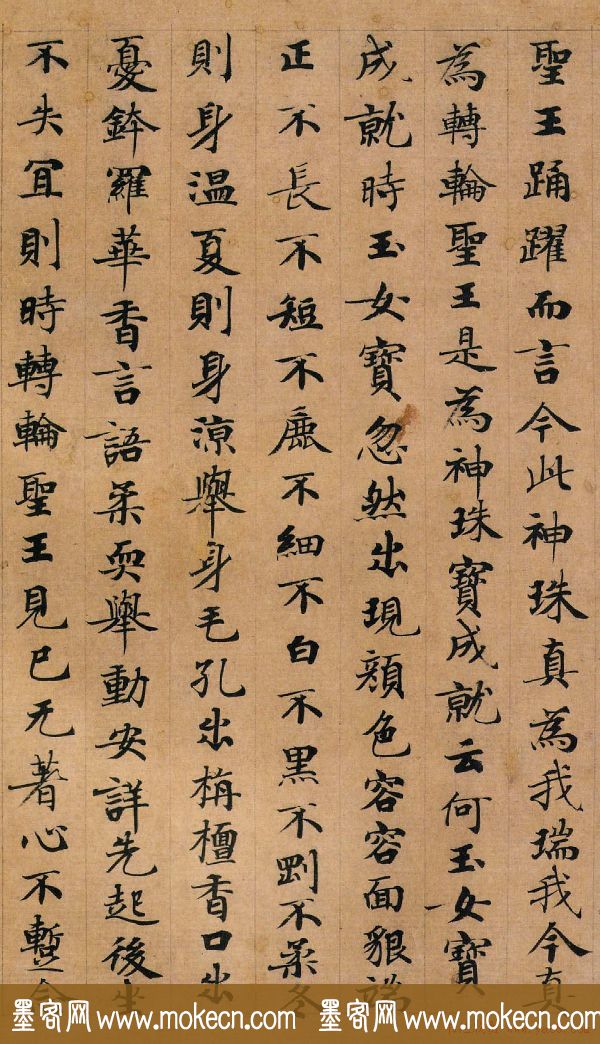 聖王踊躍而言今此神珠真為我瑞我今真
為轉輪聖王是為神珠寶成就云何玉女寶
成就時玉女寶忽然出現顏色容容面貌
正不長不短不麁不細不白不黑不剛不柔冬
則身溫夏則身涼舉身毛孔出栴檀香口出
憂鉢羅華香言語柔耎舉動安詳先起後坐
不失冝則時轉輪聖王見已无著心不暫
墨客网 www.mokecn.com 墨客网 www.mokecn.com